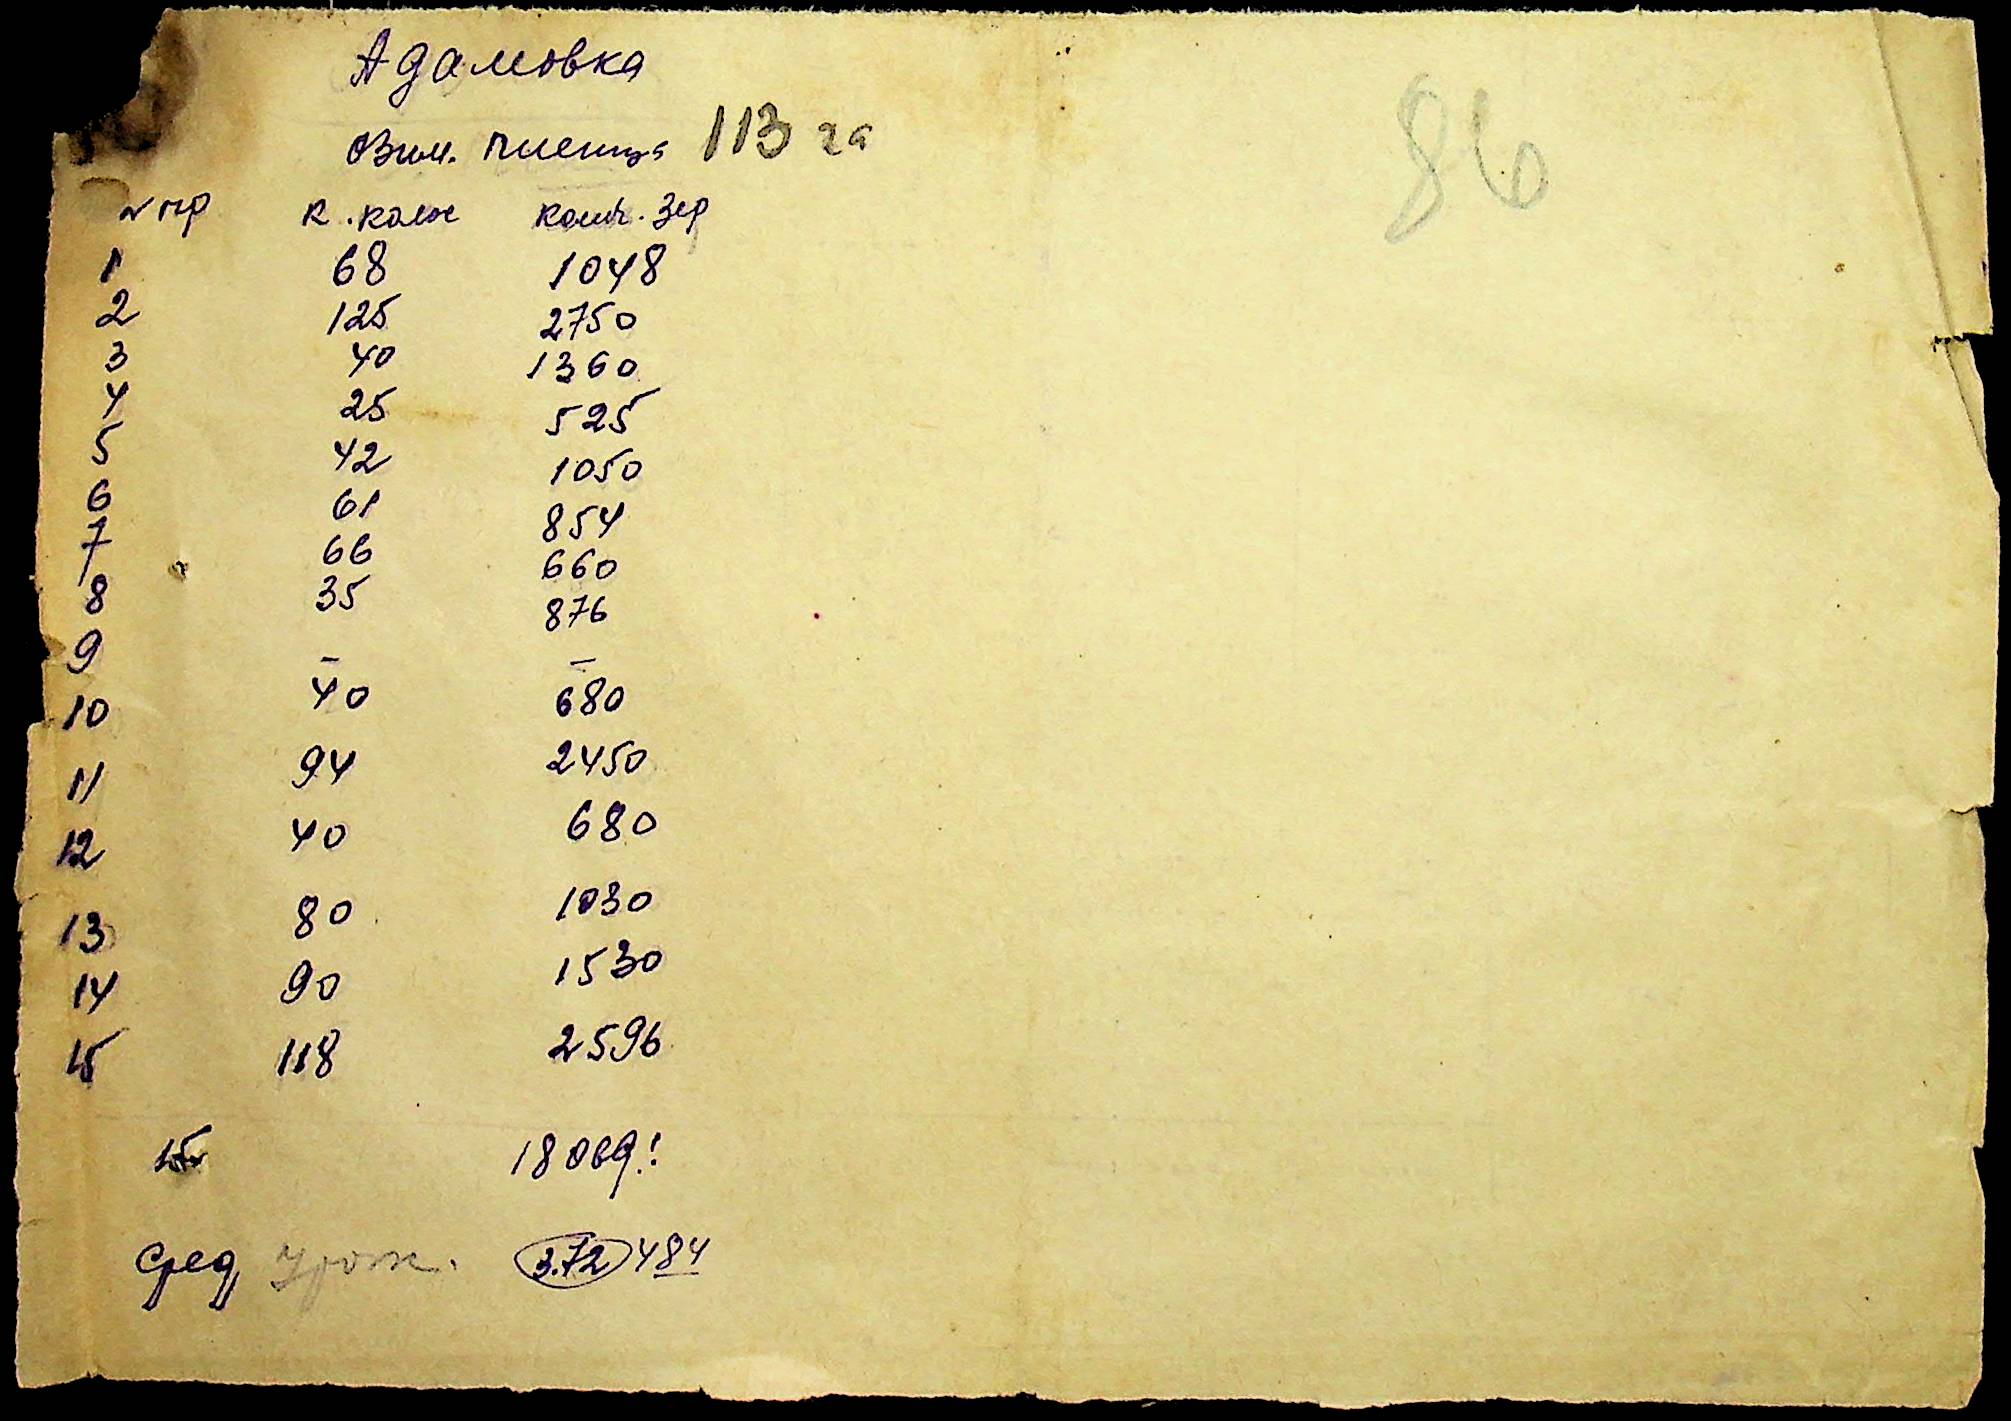 Адамовка
Озим. пшеница 113 га
86
№ пр к. колос колич. зер
1 68 1048
2 125 2750
3 40 1360
4 25 525
5 42 1050
6 61 854
7 66 660
8 35 876
9 – –
10 40 680
11 94 2450
12 40 680
13 80 1030
14 90 1530
15 118 2596
18089!
сред урож. 3.72 484